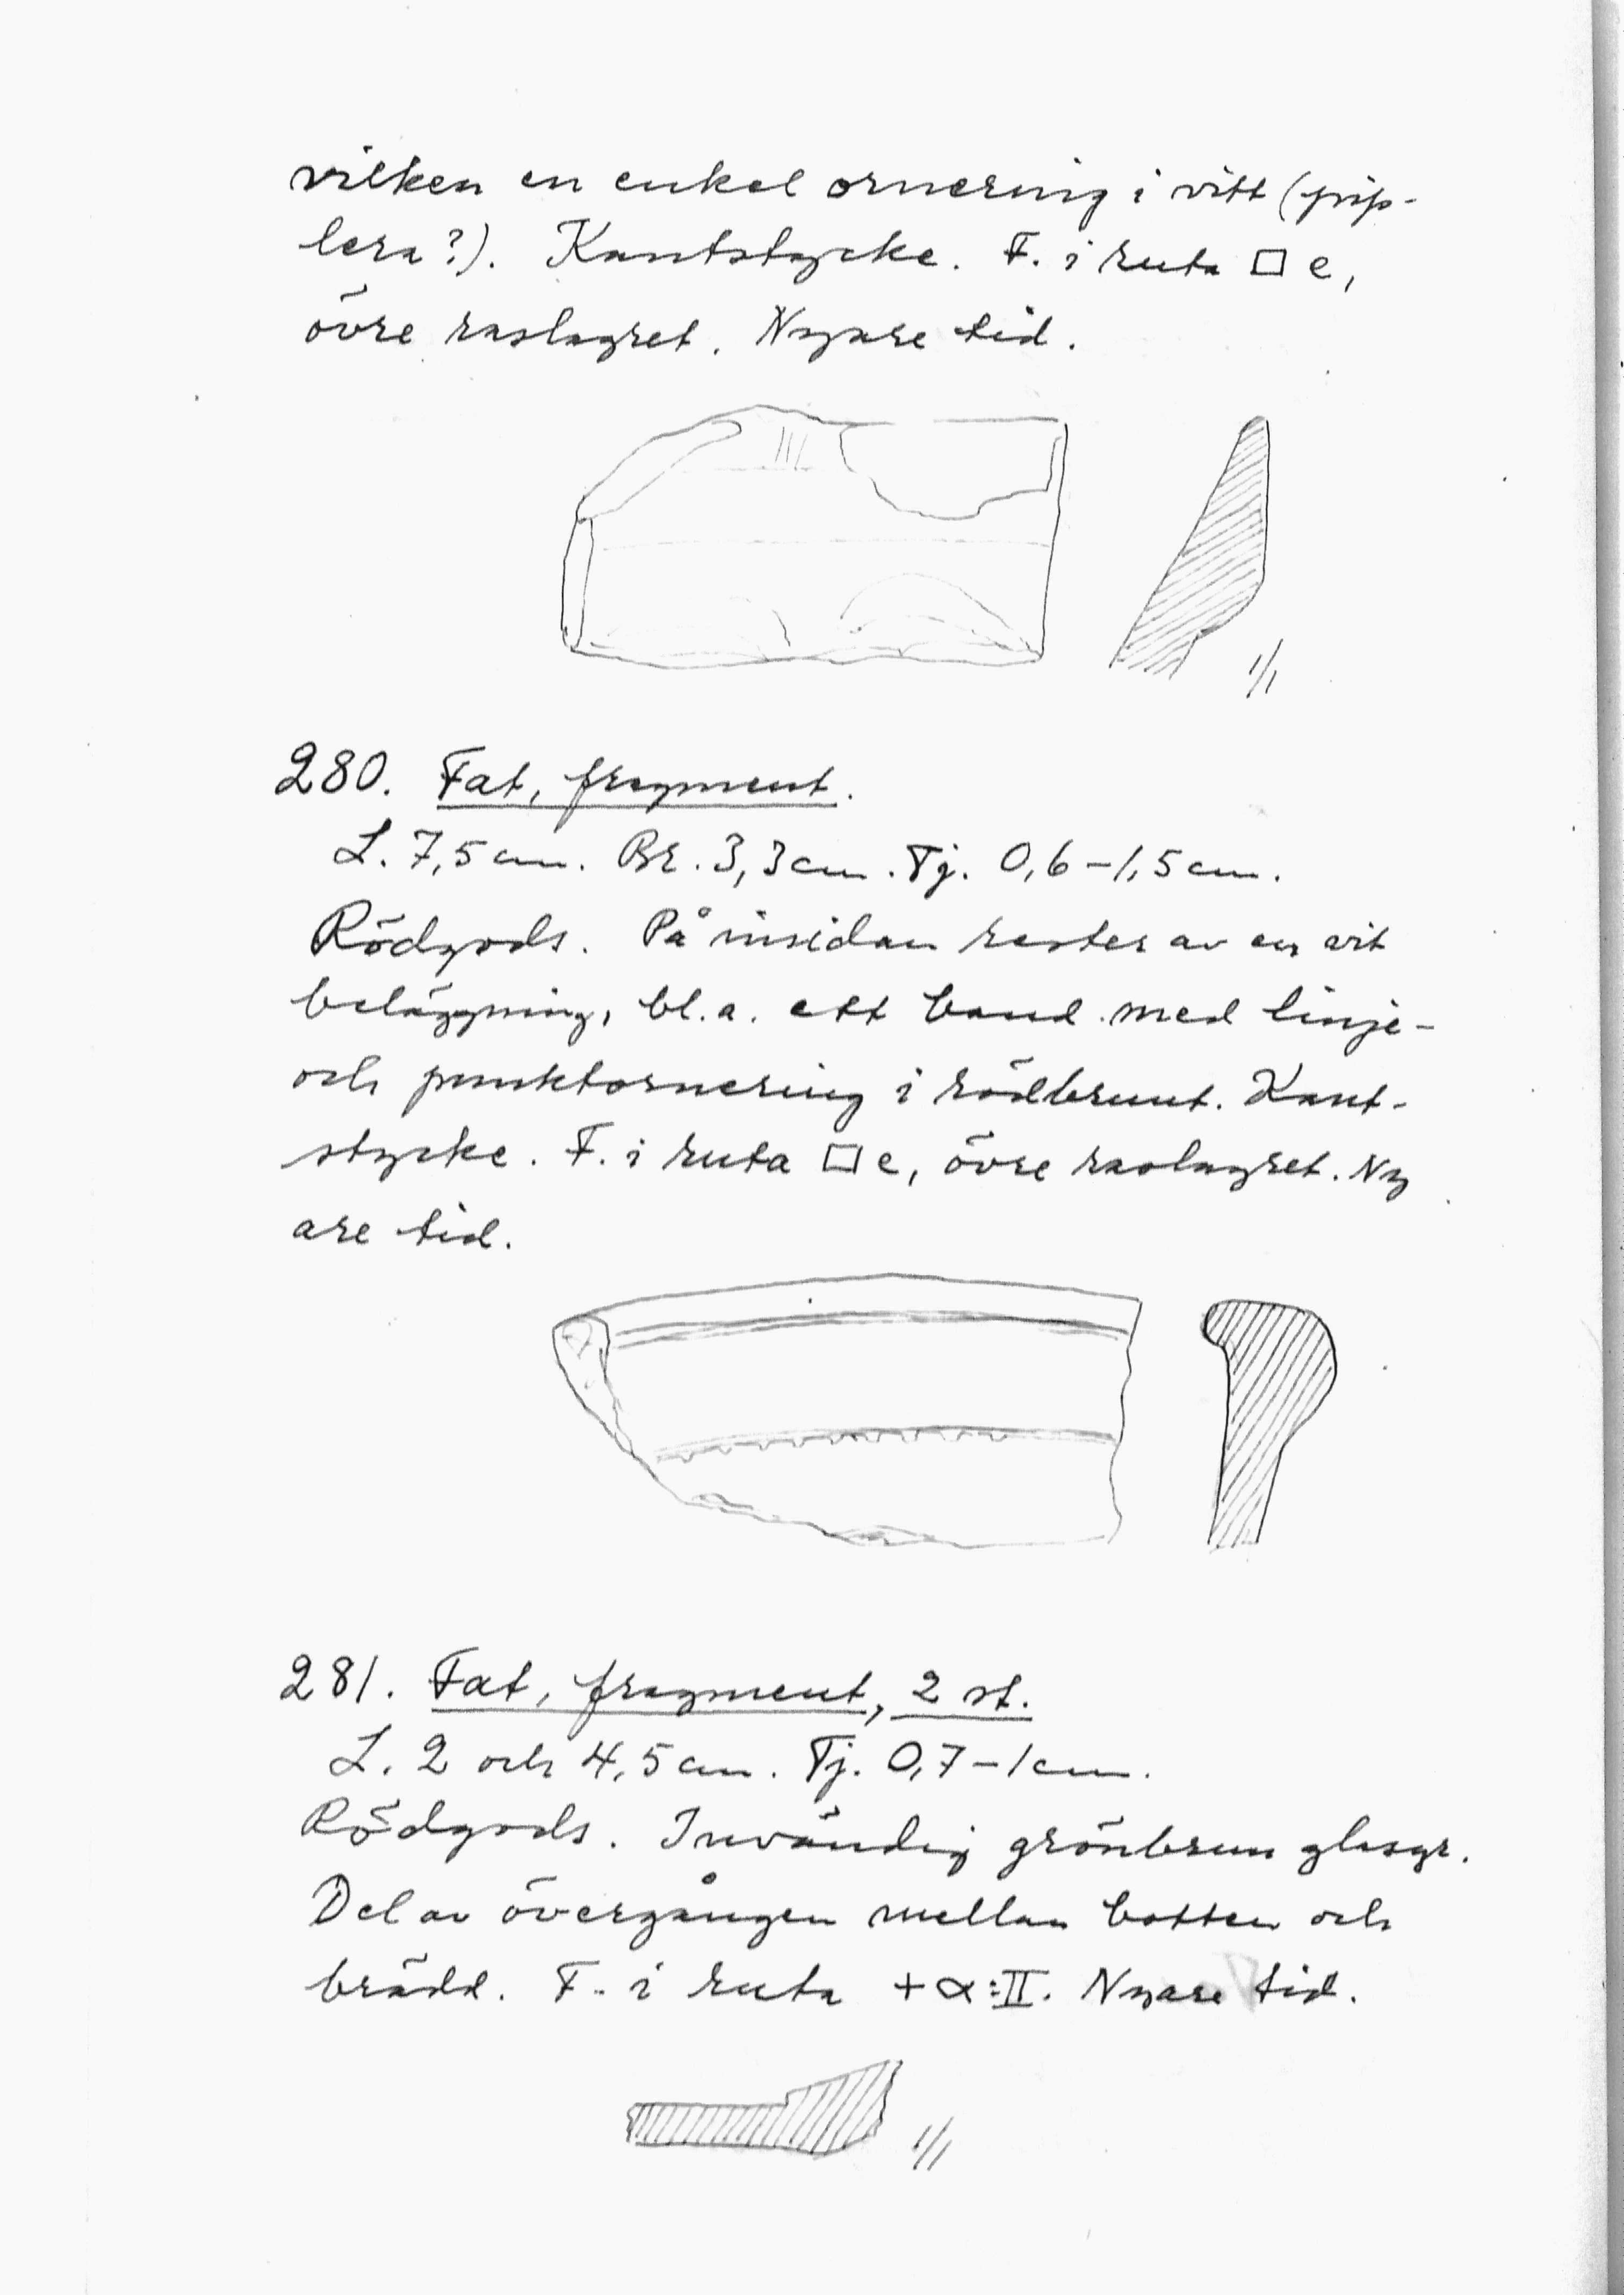 vilken en enkel ornering i vitt (pip-
lera?). Kantstycke. F. i ruta □ e,
övre raslagret. Nyare tid.
1/1
280. Fat, fragment.
L. 7,5 cm. Br. 3,3 cm. Tj. 0,6–1,5 cm.
Rödgods. På insidan rester av en vit
beläggning, bl.a. ett band med linje-
och punktornering i rödbrunt. Kant-
stycke. F. i ruta □ e, övre raslagret. Ny
are tid.
281. Fat, fragment, 2 st.
L. 2 och 4,5 cm. Tj. 0,7–1 cm.
Rödgods. Invändig grönbrun glasyr.
Del av övergången mellan botten och
brädd. F. i ruta +α:II. Nyare tid.
1/1